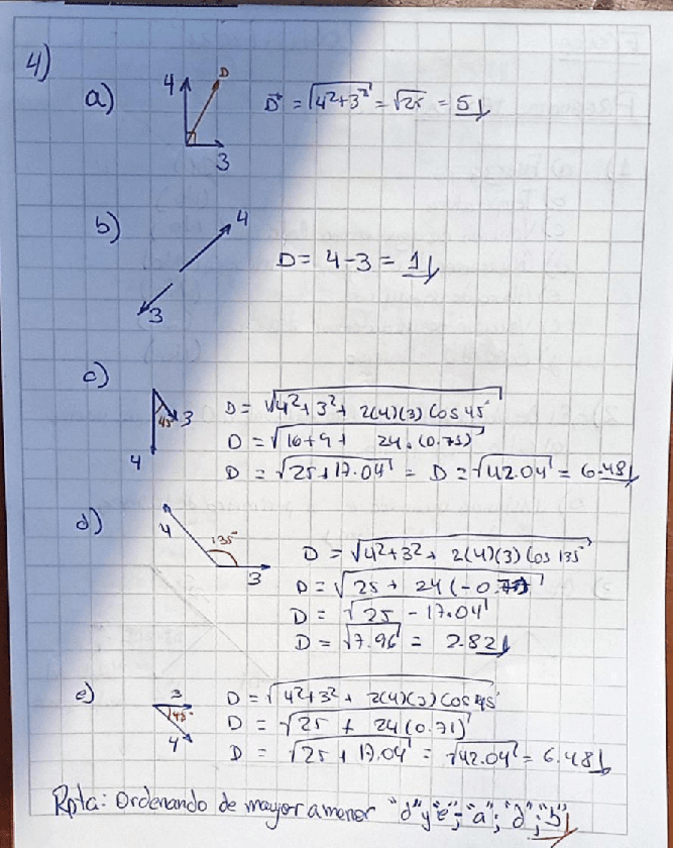 4)
a) 4 D 3 D⃗ = √4²+3² = √25 = 5
b) 4 3 D = 4-3 = 1
c) 45° 3 4 D = √4²+3²+ 2(4)(3) Cos 45°
D = √16+9+ 24.(0.71)
D = √25+17.04 = D = √42.04 = 6.48
d) 4 135° 3 D = √4²+3²+ 2(4)(3) Cos 135°
D = √25 + 24(-0.71)
D = √25 - 17.04
D = √7.96 = 2.82
e) 3 45° 4 D = √4²+3²+ 2(4)(3) Cos 45°
D = √25 + 24(0.71)
D = √25+17.04 = √42.04 = 6.48
Rpta: Ordenando de mayor a menor "c" y "e"; "a"; "d"; "b"